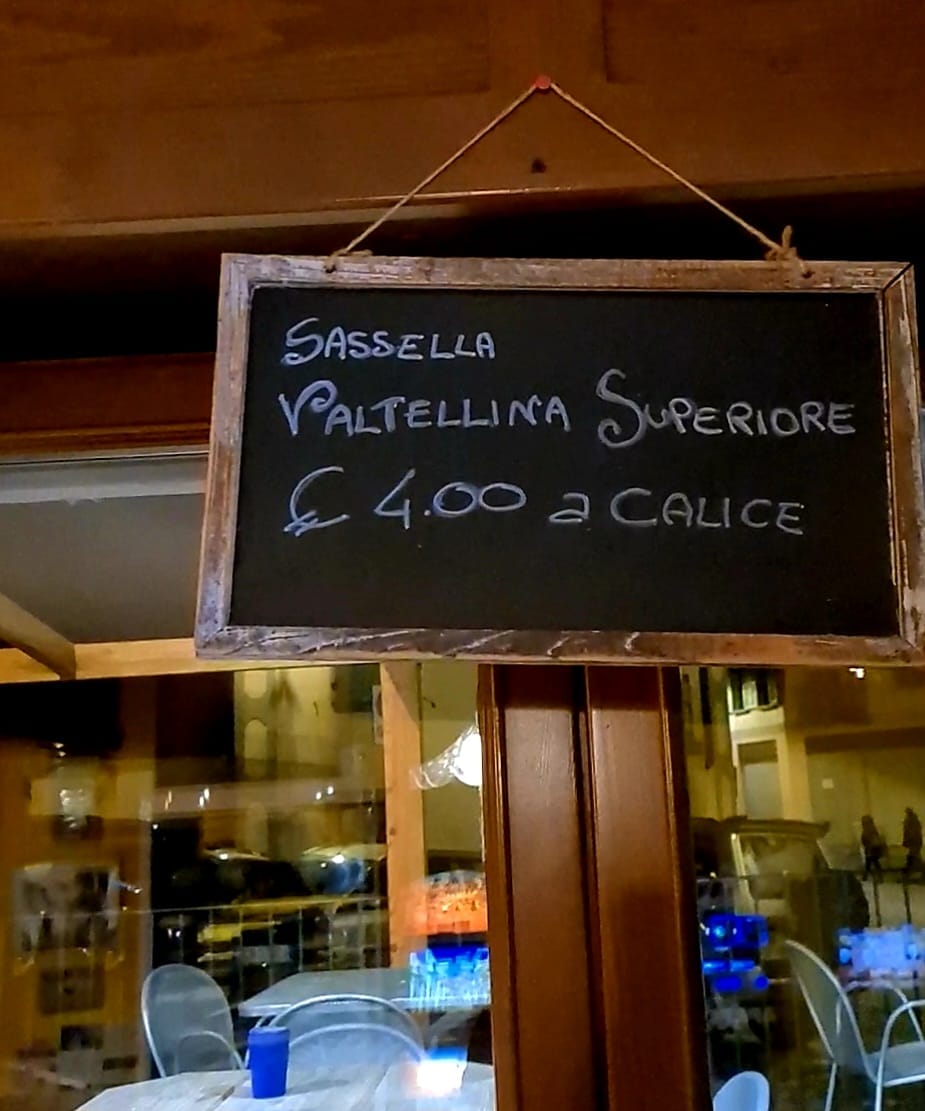 SASSELLA
VALTELLINA SUPERIORE
€ 4.00 a CALICE